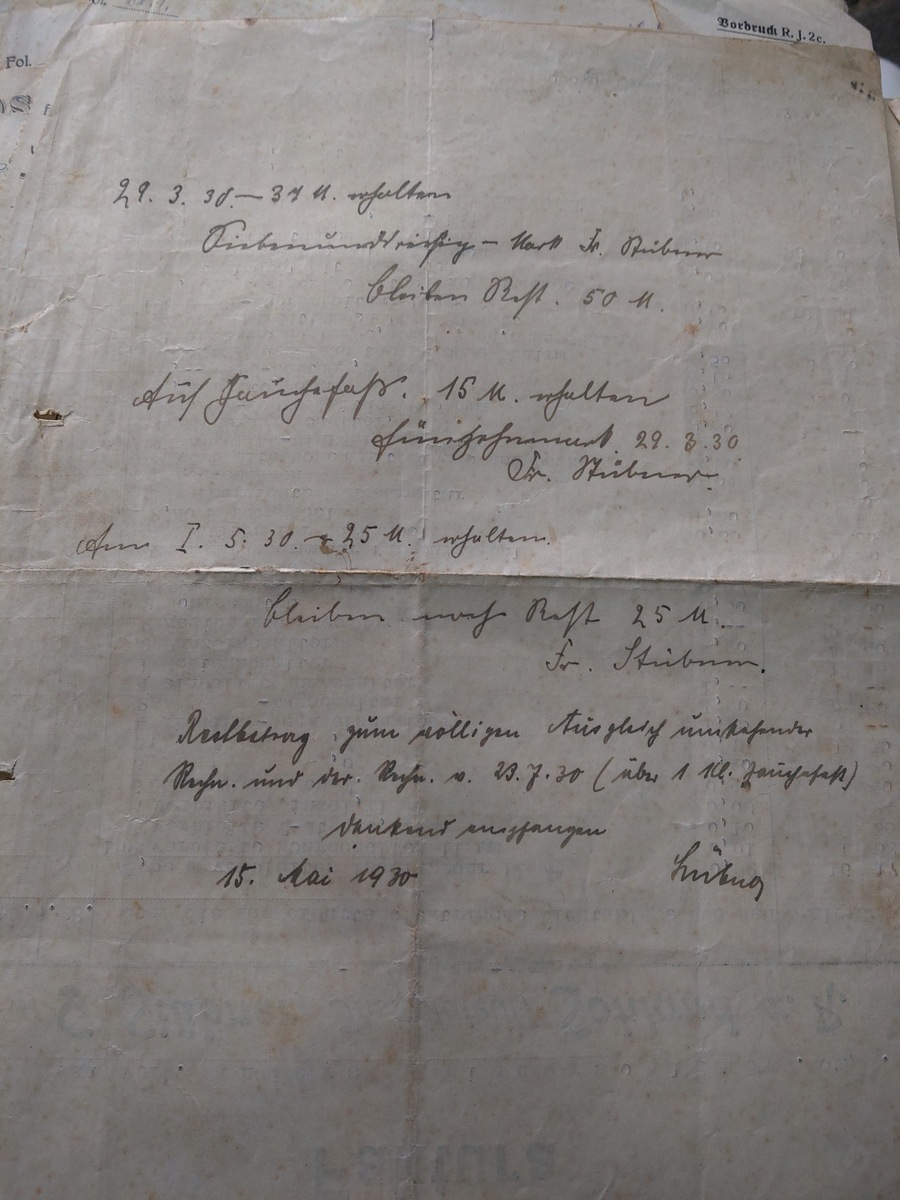 Vorbruck R. J. 2c.
Fol.
29. 3. 30. — 37 M. erhalten
Siebenunddreißig – Mark Fr. Stübner
bleiben Rest. 50 M.
Auf Jauchefaß. 15 M. erhalten
fünfzehnmark 29. 3. 30
Fr. Stübner.
Am I. 5. 30. 25 M. erhalten.
bleiben noch Rest 25 M.
Fr. Stübner.
Restbetrag zum völligen Ausgleich umstehender
Rechn. und der Rechn. v. 23. 7. 30 (über 1 Kl. Jauchefaß)
dankend empfangen
15. Mai 1930
Faktura